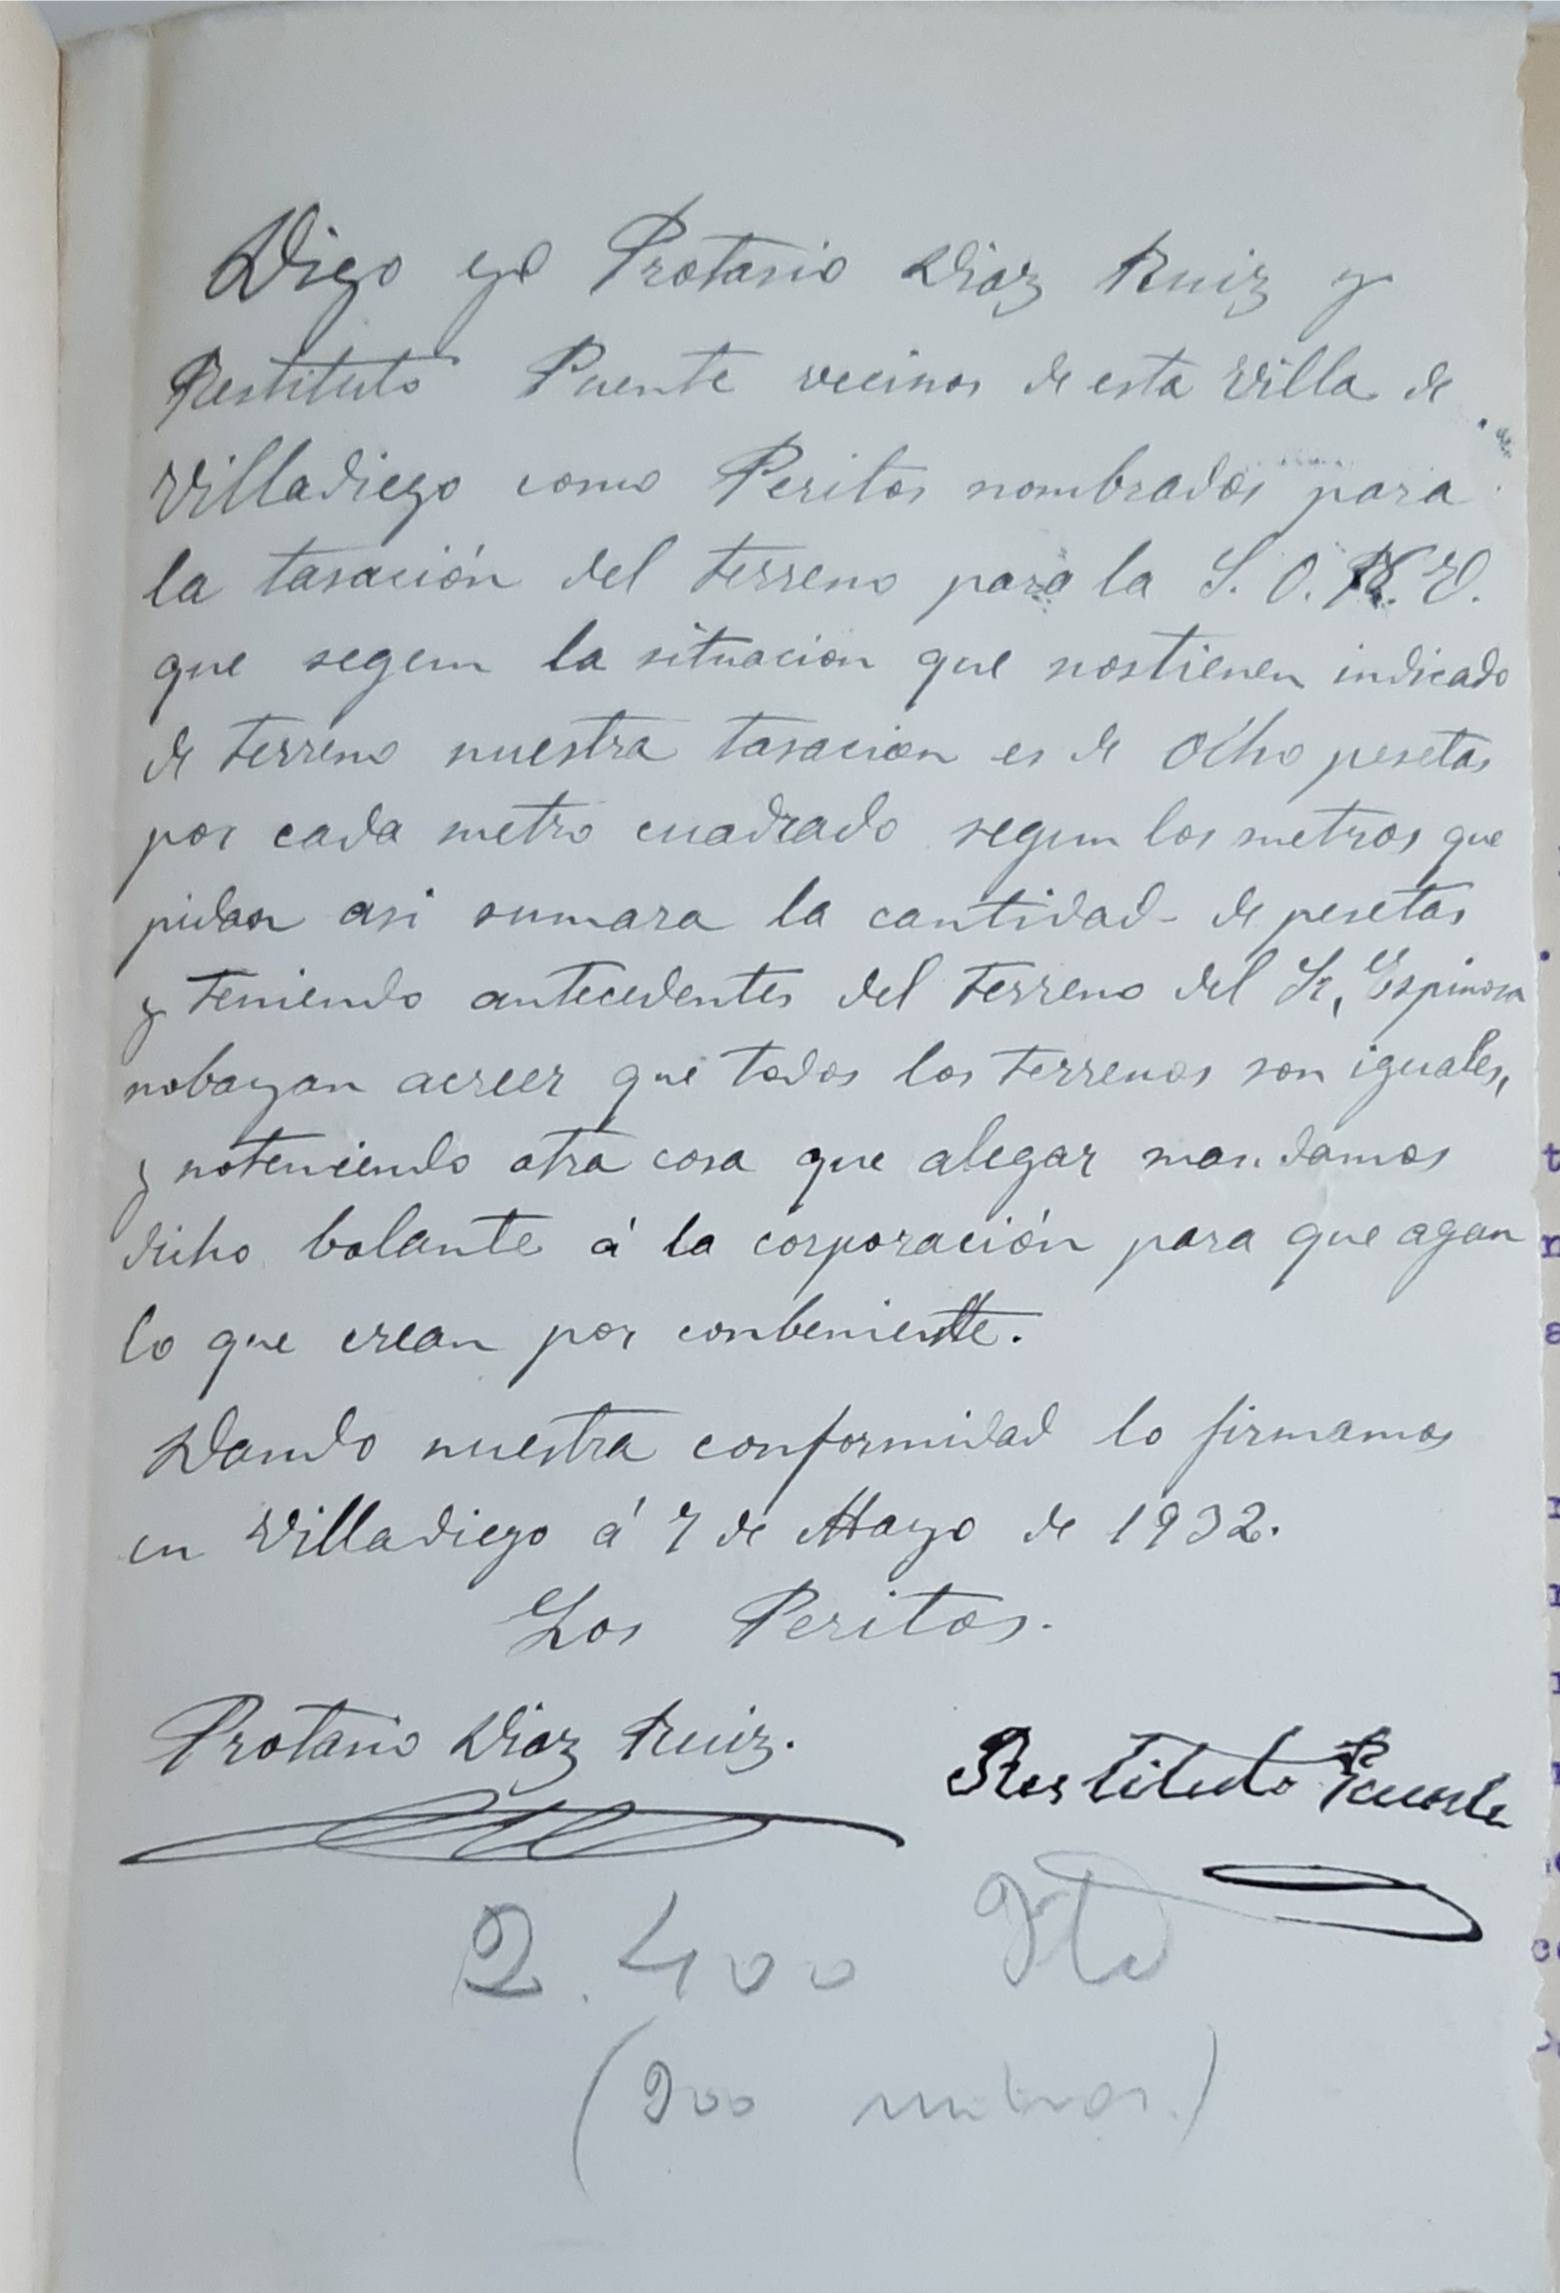 Digo yo Protasio Diaz Ruiz y
Restituto Puente vecinos de esta Villa de
Villadiego como Peritos nombrados para
la tasación del terreno para la S. O. K. V.
que segun la situacion que sostienen indicado
de terreno nuestra tasacion es de Ocho pesetas
por cada metro cuadrado segun los metros que
pidan asi sumara la cantidad de pesetas
y teniendo antecedentes del terreno del Sr, Espinosa
nobayan acreer que todos los terrenos son iguales,
y noteniendo otra cosa que alegar mandamos
dicho bolante á la corporación para que agan
lo que crean por conbeniente.
Dando nuestra conformidad lo firmamos
en Villadiego á 7 de Mayo de 1932.
Los Peritos.
Protasio Diaz Ruiz.
Restituto Puente
2.400
(300 metros.)